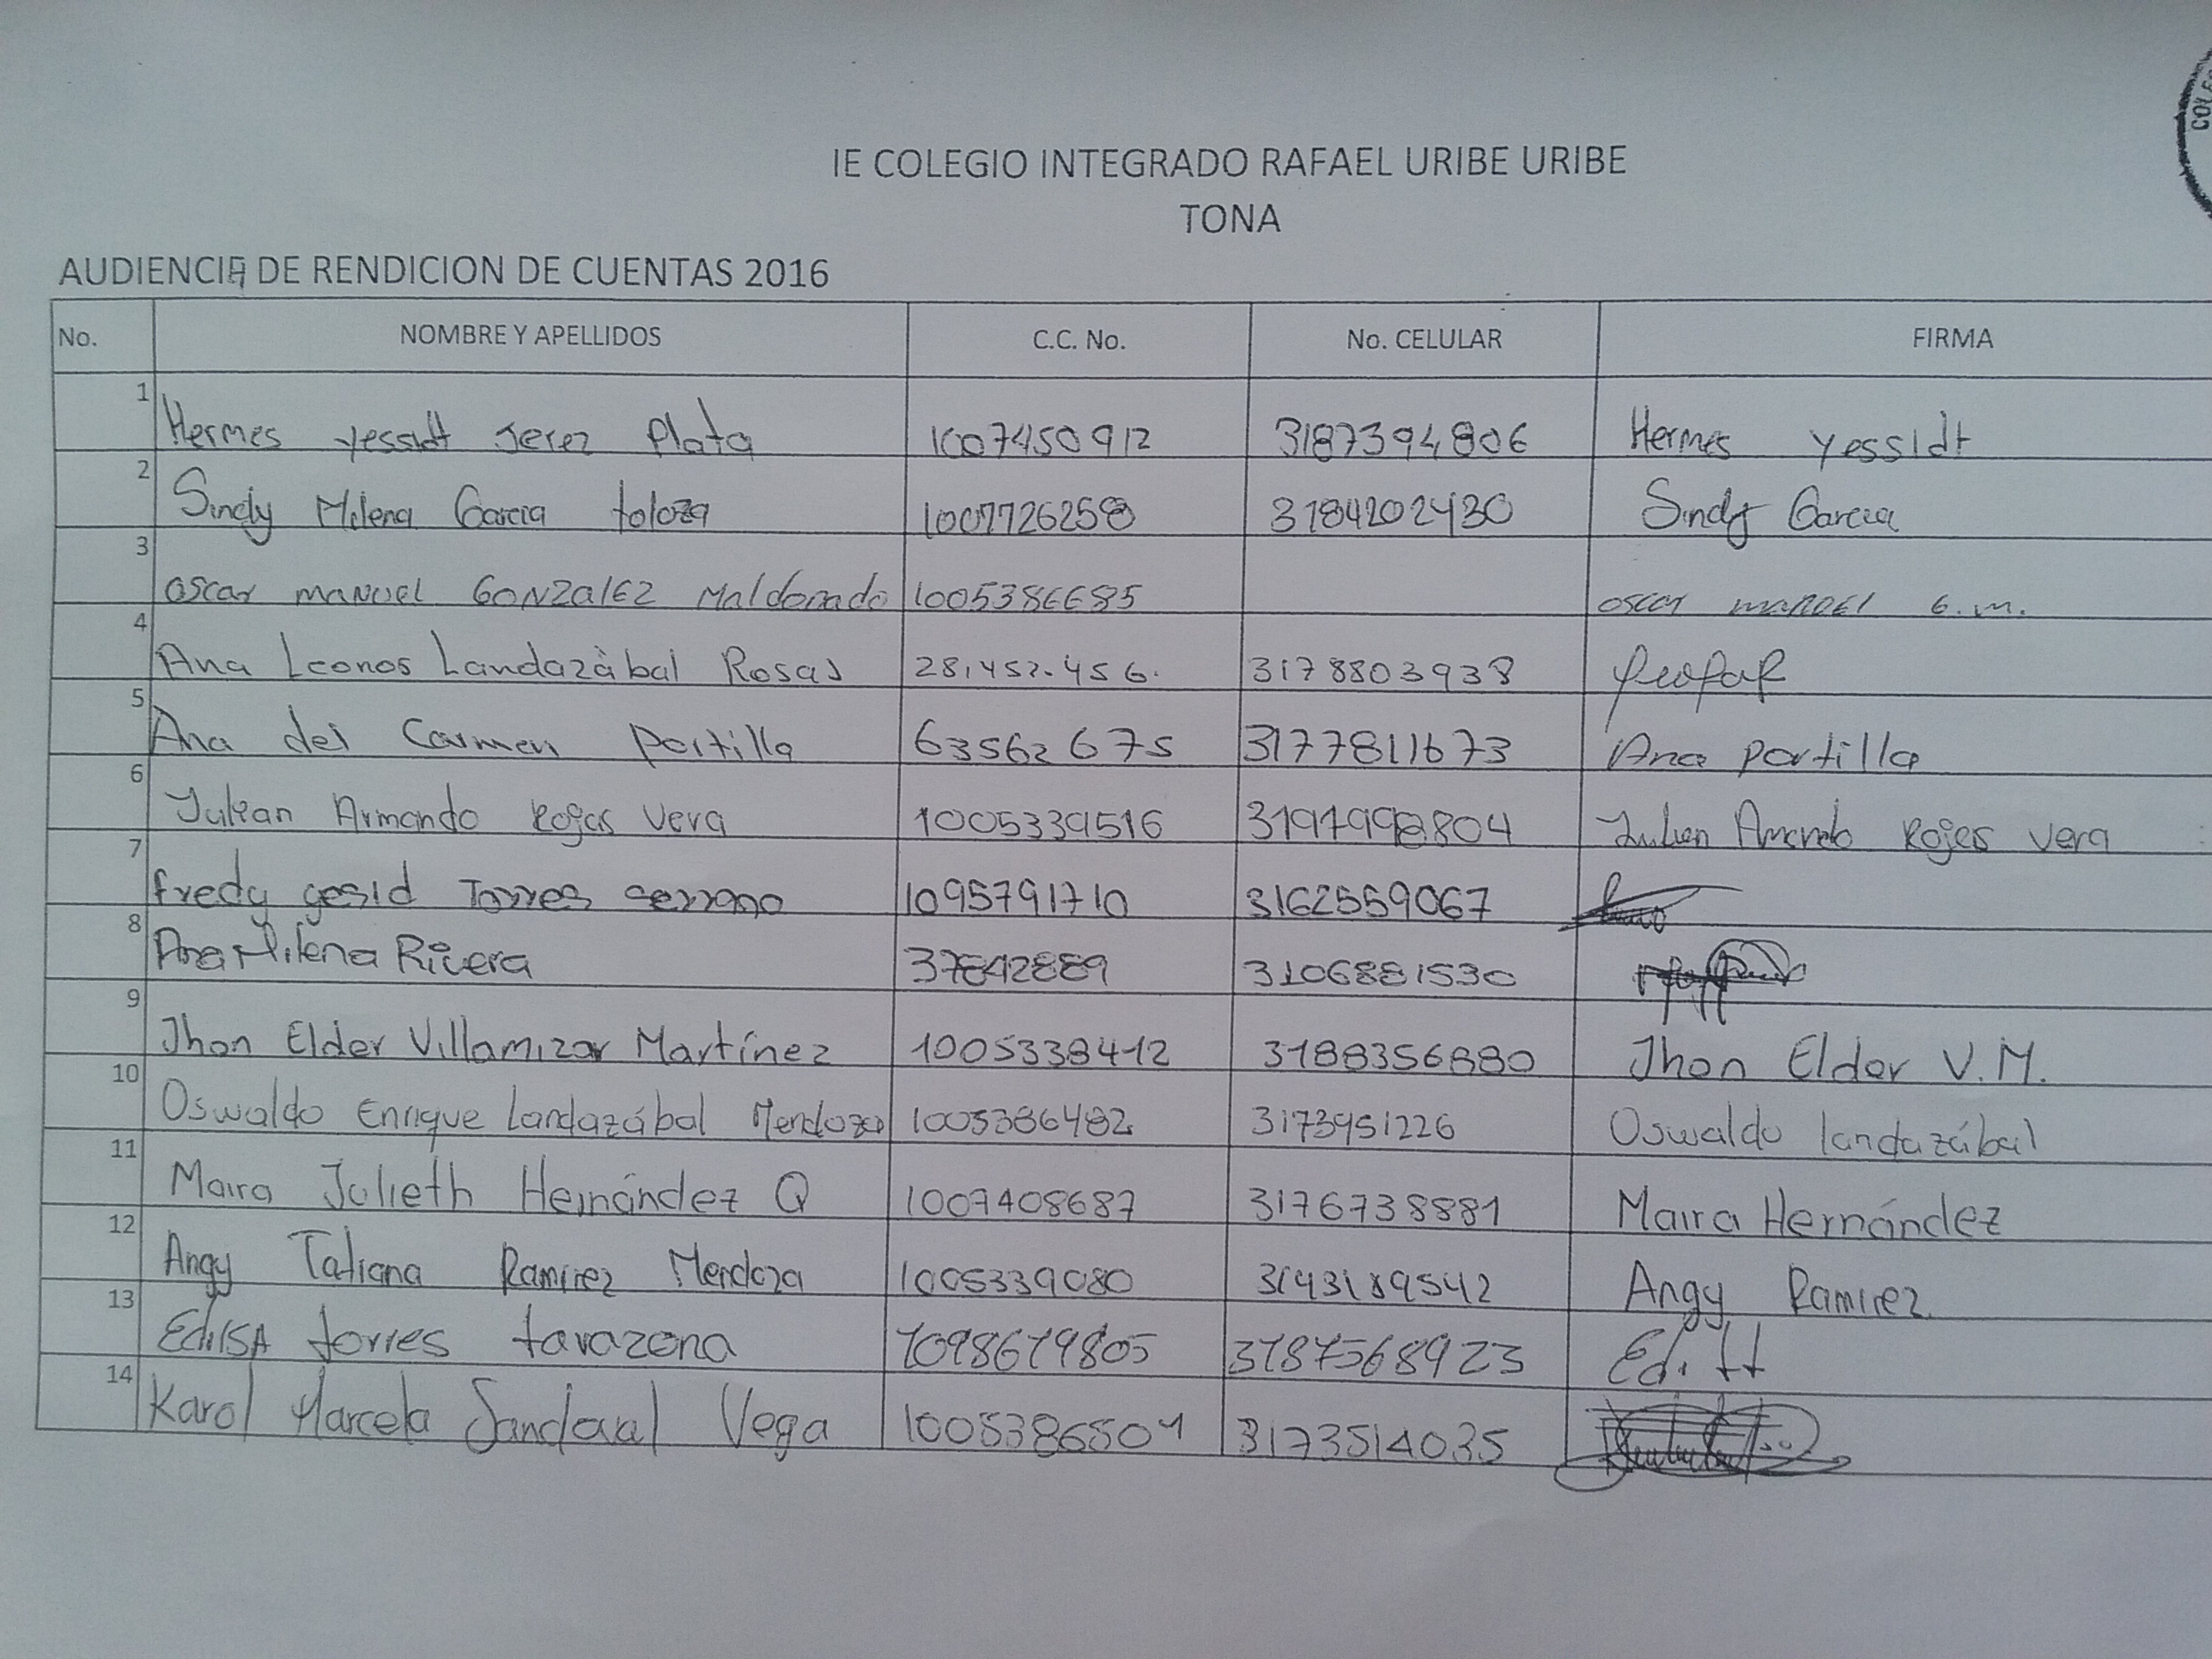 COLEG
IE COLEGIO INTEGRADO RAFAEL URIBE URIBE
TONA
AUDIENCIA DE RENDICION DE CUENTAS 2016
No. NOMBRE Y APELLIDOS C.C. No. No. CELULAR FIRMA
1 Hermes yessidt Jerez Plata 1007450912 3187394806 Hermes yessidt
2 Sindy Milena Garcia toloza 1007726258 3184202430 Sindy Garcia
3 Oscar manuel GONZalEZ Maldonado 1005386685 oscar manuel G.m.
4 Ana Leonos Landazàbal Rosas 28,457.456. 3178803938
5 Ana del Carmen portilla 63562675 3177811673 Ana portilla
6 Julian Armando Rojas Vera 1005339516 3197998804 Julian Amando Rojas Vera
7 fredy yesid Torres serrano 1095791710 3162559067
8 Ana Milena Rivera 37842889 3106881530
9 Jhon Elder Villamizar Martínez 1005338412 3188356880 Jhon Elder V.M.
10 Oswaldo Enrique landazábal Mendoza 1005386482 3173951226 Oswaldo landazábal
11 Maira Julieth Hernández Q 1007408687 3176738881 Maira Hernández
12 Angy Tatiana Ramirez Mendoza 1005339080 3143189542 Angy Ramirez
13 EdilSA torres tarazona 1098679805 3187568923 Edi tt
14 Karol Marcela Sandoval Vega 1005386504 3173514035